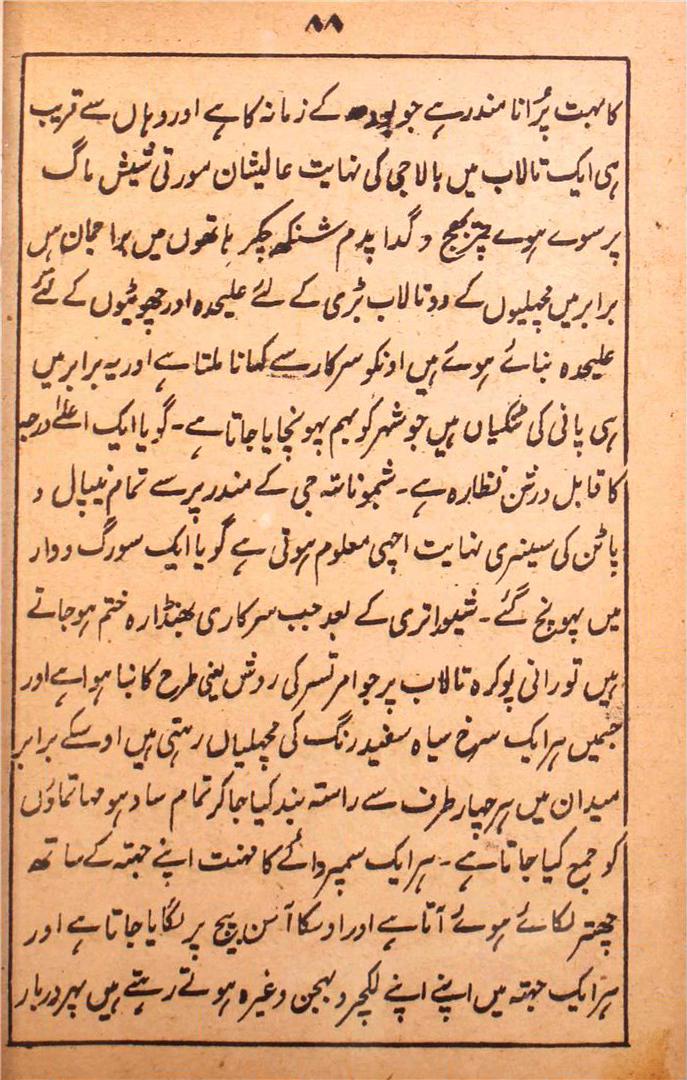 ۸۸
کا بہت پُرانا مندر ہے جو بودھ کے زمانہ کا ہے اور وہاں سے قریب
ہی ایک تالاب میں بالاجی کی نہایت عالیشان مورتی شیش ناگ
پر سوے ہوے چتر بھج و گدا پدم شنکھ چکر ہاتھوں میں براجمان ہیں
برابر میں مچہلیوں کے دو تالاب بڑی کے لئے علیحدہ اور چھوٹیوں کے لئے
علیحدہ بنائے ہوئے ہیں اونکو سرکار سے کہانا ملتا ہے اور یہ برابر میں
ہی پانی کی ٹنکیاں ہیں جو شہر کو بہم پہونچایا جاتا ہے۔ گویا ایک اعلےٰ درجہ
کا قابل درشن نظارہ ہے۔ شمبوناتہ جی کے مندر پر سے تمام نیپال و
پاٹن کی سینری نہایت اچہی معلوم ہوتی ہے گویا ایک سورگ دوار
میں پہونچ گئے۔ شیواتری کے بعد جب سرکاری بھنڈارہ ختم ہو جاتے
ہیں تو رانی پوکرہ تالاب پر جو امرتسر کی روش یعنی طرح کا بنا ہوا ہے اور
جسمیں ہر ایک سرخ سیاہ سفید رنگ کی مچہلیاں رہتی ہیں اوسکے برابر
میدان میں ہر چہار طرف سے راستہ بند کیا جا کر تمام سادہو مہاتماؤں
کو جمع کیا جاتا ہے۔ ہر ایک سمپردائے کا مہنت اپنے جہتہ کے ساتھ
چھتر لگائے ہوئے آتا ہے اور اوسکا آسن بیچ پر لگایا جاتا ہے اور
ہر ایک جہتہ میں اپنے اپنے لکچر و بہجن وغیرہ ہوتے رہتے ہیں پہر دربار